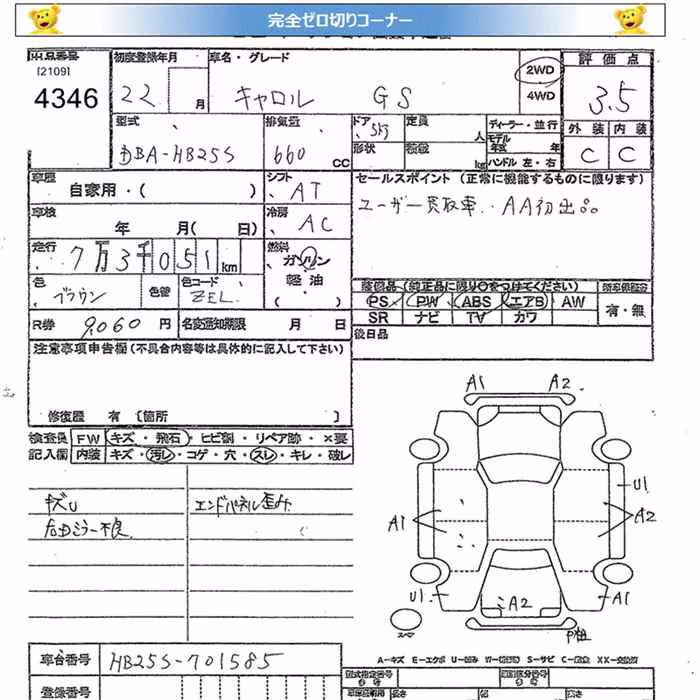 完全ゼロ切りコーナー
出品番号 初度登録年月 車名・グレード 2WD 評価点
[2109]
4346 22 月 キャロル GS 4WD 3.5
型式 排気量 ドア 5ドア 定員 人 ディーラー・並行 外装 内装
モデル年式 年
DBA-HB25S 660 CC 形状 積載 kg ハンドル 左・右 C C
車歴 自家用・( ) シフト AT セールスポイント (正常に機能するものに限ります)
車検 年 月( 日) 冷房 AC ユーザー買取車、AA初出品
走行 7万3千051km 燃料 ガソリン
軽油
( )
色 ブラウン 色替 色コード ZEL
装備品 (純正品に限り○をつけてください)
PS PW ABS エアB AW 有・無
SR ナビ TV カワ
R券 9060円 名変通知期限 月 日 後日品
注意事項申告欄 (不具合内容等は具体的に記入して下さい)
修復歴 有 [箇所 ]
検査員 FW キズ・飛石・ヒビ割・リペア跡・×要
記入欄 内装 キズ・汚レ・コゲ・穴・スレ・キレ・破レ
キズU エンドパネル歪み
右Dミラー不良
A1 A2
U1
A1 A2
U1 A2 A1
車台番号 HB25S-701585
A－キズ E－エクボ U－凹み W－ S－サビ C－腐食 XX－交換済
登録番号